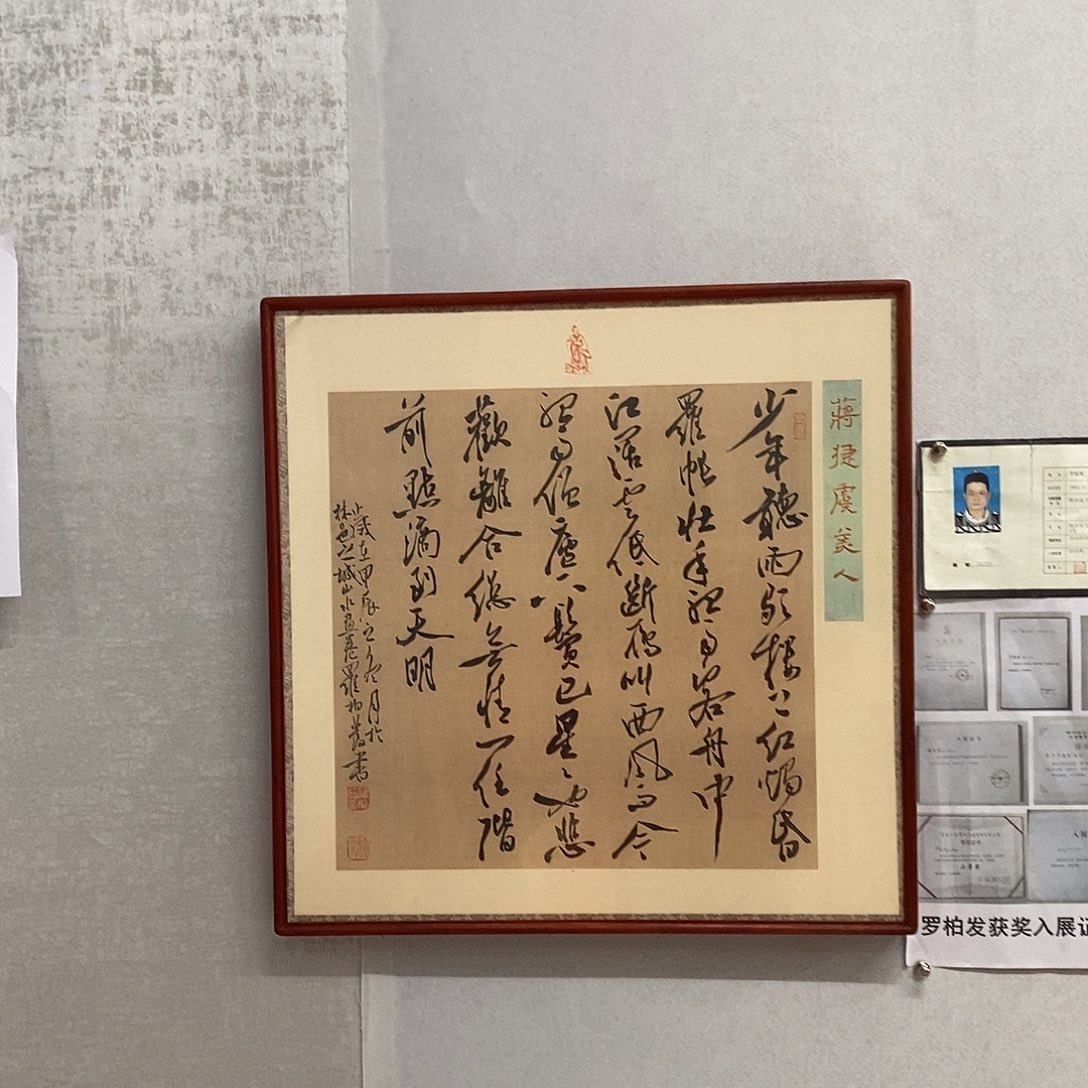 蔣捷虞美人
少年聽雨歌樓上紅燭昏
羅帳壯年聽雨客舟中
江闊雲低斷雁叫西風而今
聽雨僧廬下鬢已星〻也悲
歡離合總無情一任階
前點滴到天明
歲在甲辰之冬月於
林邑之城山水画苑羅柏發書
罗柏发获奖入展证